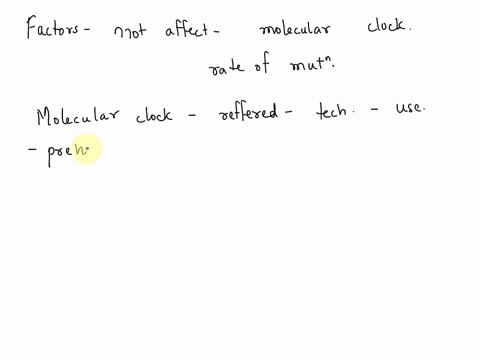 Factors - not affect - molecular clock.
rate of mutⁿ.
Molecular clock - reffered - tech. - use.
- preh